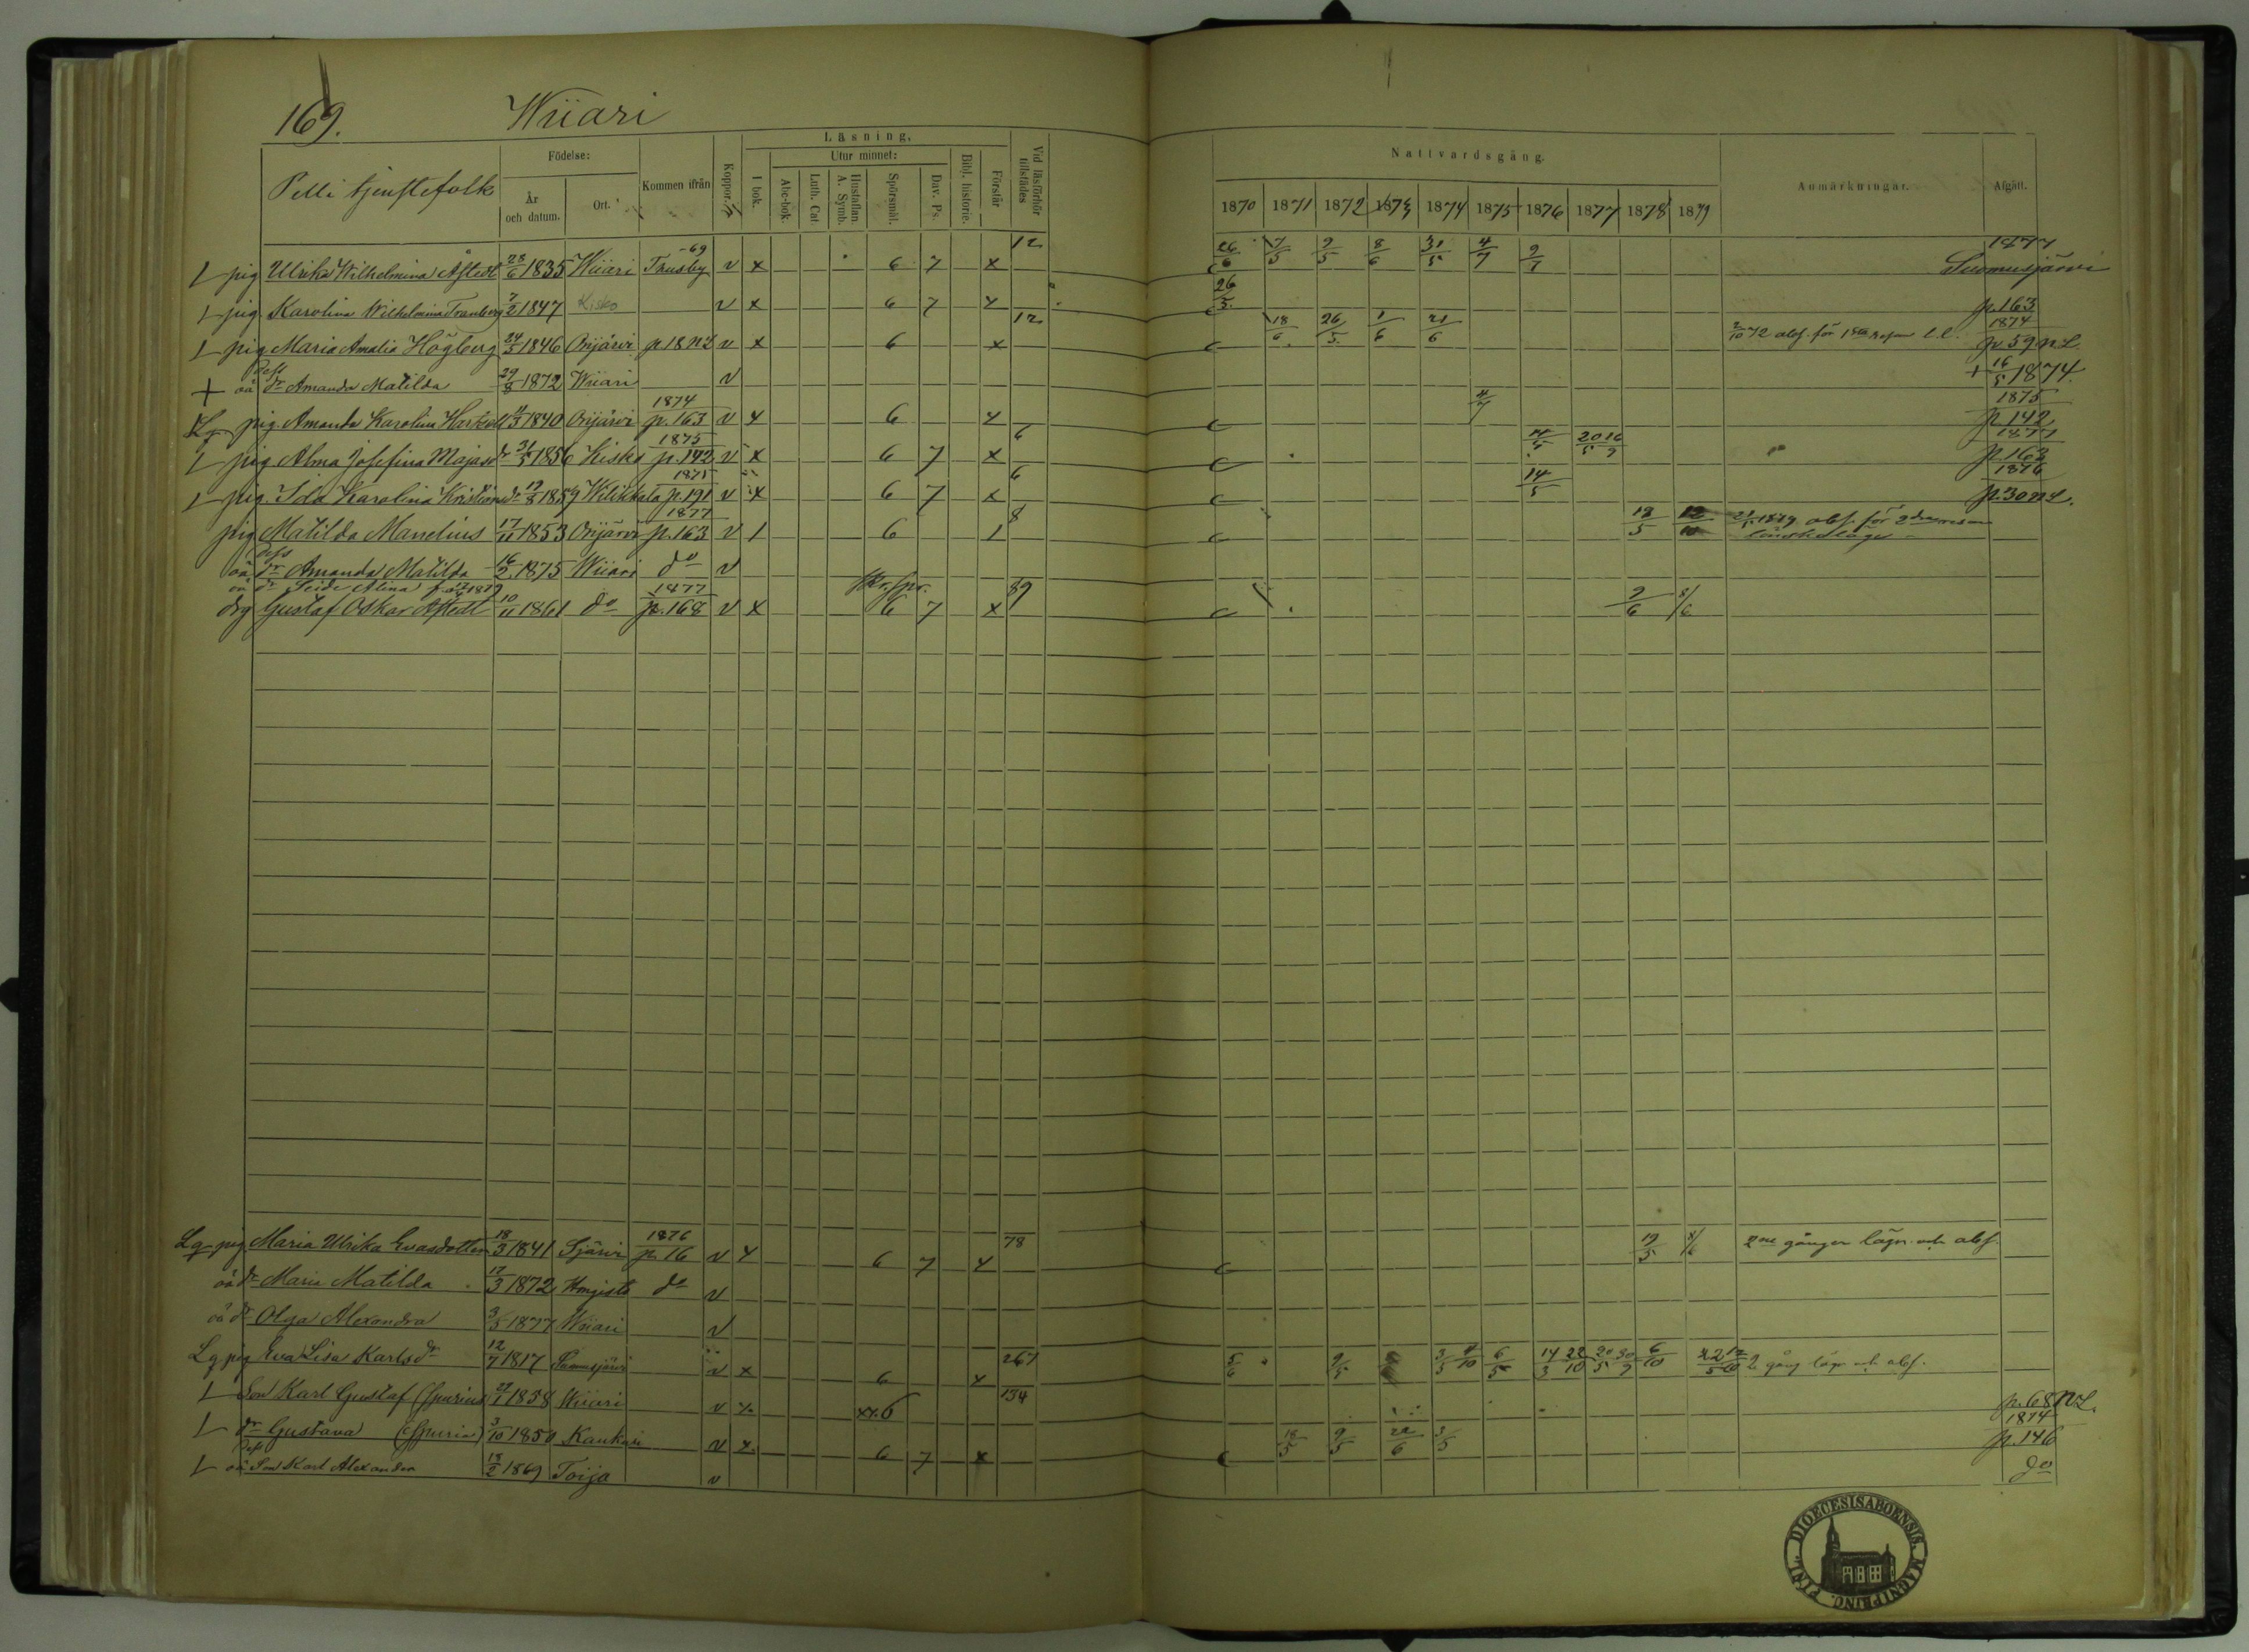 169. Wiiari
Pelli tjenstefolk
Födelse:
År och datum.
Ort.
Kommen ifrån
Koppor.
Läsning.
I bok.
Utur minnet:
Abc-bok
Luth. Cat.
Hustaflan. A. Symb.
Spörsmål.
Dav. Ps.
Bibl. historie.
Förstår
Vid läsförhör tillstädes
Nattvardsgång.
1870 1871 1872 1873 1874 1875 1876 1877 1878 1879
Anmärkningar.
Afgått.
pig Ulrika Wilhelmina Åstedt 28/6 1835 Wiiari Thusby -69 v x 6 7 x 12 26/6 7/5 9/5 8/6 31/5 4/7 9/7 1877 Suomusjärvi
pig Karolina Wilhelmina Tranberg 7/2 1847 Kisko v x 6 7 x 26/5 p. 163
pig Maria Amalia Högberg 24/3 1846 Orijärvi p 18 NL v x 6 x 12 18/6 26/5 1/6 21/6 2/10 72 abs. för 1sta resan l.l. 1874 p 59 NL
+ oä dess dr Amanda Matilda 29/8 1872 Wiiari v + 16/5 1874.
Lg pig Amanda Karolina 1840 Orijärvi 1874 p. 163 v x 6 x 4/7 1875 p 142
pig Alma Josefina Majasdr 31/5 1856 Kisko 1875 p. 142 v x 6 7 x 6 20/5 16/9 1877 p. 163
pig Ida Karolina 19/8 1859 Wilikkala 1875 p. 191 v x 6 7 x 6 14/5 1876 p. 30 NL.
pig Matilda Manelius 17/11 1853 Orijärvi 1877 p. 163 v 1 6 1 8 19/5 12/10 1879 abs. för 2dra resan lönskaläge
oä dess dr Amanda Matilda 16/2 1875 Wiiari do v
oä dr Alina
drg Gustaf Oskar Åstedt 10/11 1861 do 1877 p. 168 v x 6 7 x 89 9/6 8/6
Lg pig Maria Ulrika Evasdotter 18/3 1841 Sjärvi 1876 p. 16 v x 6 7 x 78 19/5 8/6 2ne gånger lägr. och abs.
oä dr Maria Matilda 17/3 1872 do v
oä dr Olga Alexandra 3/5 1877 Wiiari v
Lg pig Eva Lisa Karlsdr 12/7 1817 Suomusjärvi v x 6 x 267 5/6 9/5 3/5 4/10 6/5 14/3 22/10 20/5 30/9 6/10 2 gång lägr och abs.
Son Karl Gustaf (spurius) 22/1 1858 Wiiari v x 6 134 p. 68 NL.
dr Gustava (spuria) 3/10 1850 Kaukuri v x 6 7 x 18/5 9/5 22/6 3/5 1874 p. 146
oä dess Son Karl Alexander 18/2 1869 Toija v do
FINL. DIOECESIS ABOENSIS. MAGNI PRINC.